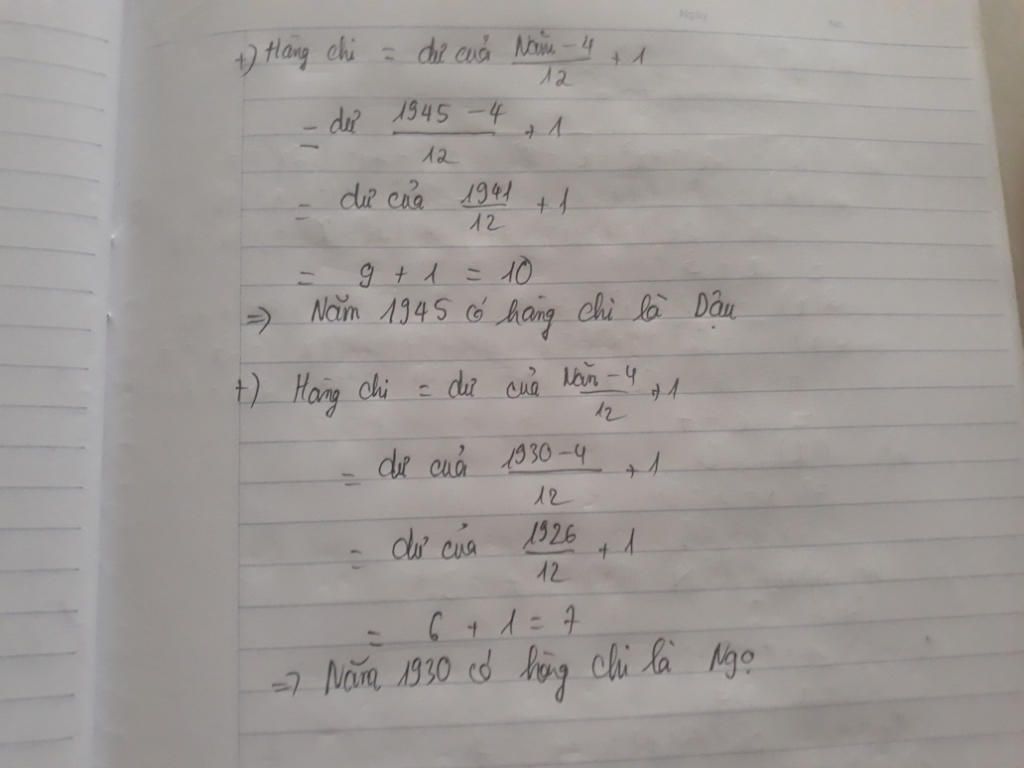 Ngày No.
+) Hàng chi = dư của (Năm - 4)/12 + 1
= dư (1945 - 4)/12 + 1
= dư của 1941/12 + 1
= 9 + 1 = 10
=> Năm 1945 có hàng chi là Dậu
+) Hàng chi = dư của (Năm - 4)/12 + 1
= dư của (1930 - 4)/12 + 1
= dư của 1926/12 + 1
= 6 + 1 = 7
=> Năm 1930 có hàng chi là Ngọ